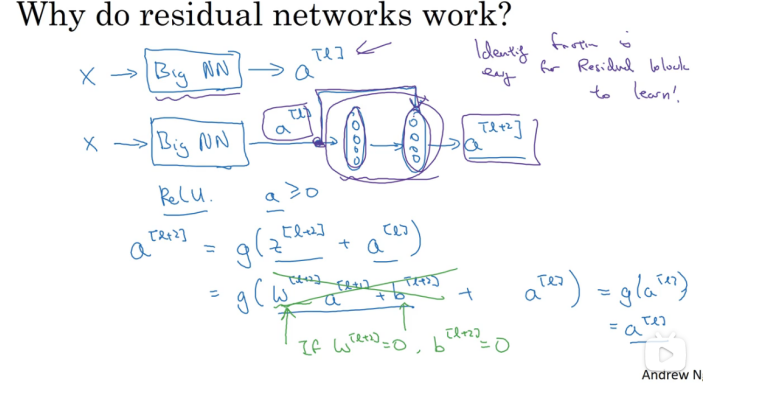 Why do residual networks work?
X → Big NN → a^[l] ←
Identity function is
easy for Residual block
to learn!
X → Big NN → a^[l] → → a^[l+2]
ReLU. a ≥ 0
a^[l+2] = g(z^[l+2] + a^[l])
= g(W^[l+2] a^[l+1] + b^[l+2] + a^[l]) = g(a^[l])
= a^[l]
If W^[l+2] = 0, b^[l+2] = 0
Andrew N